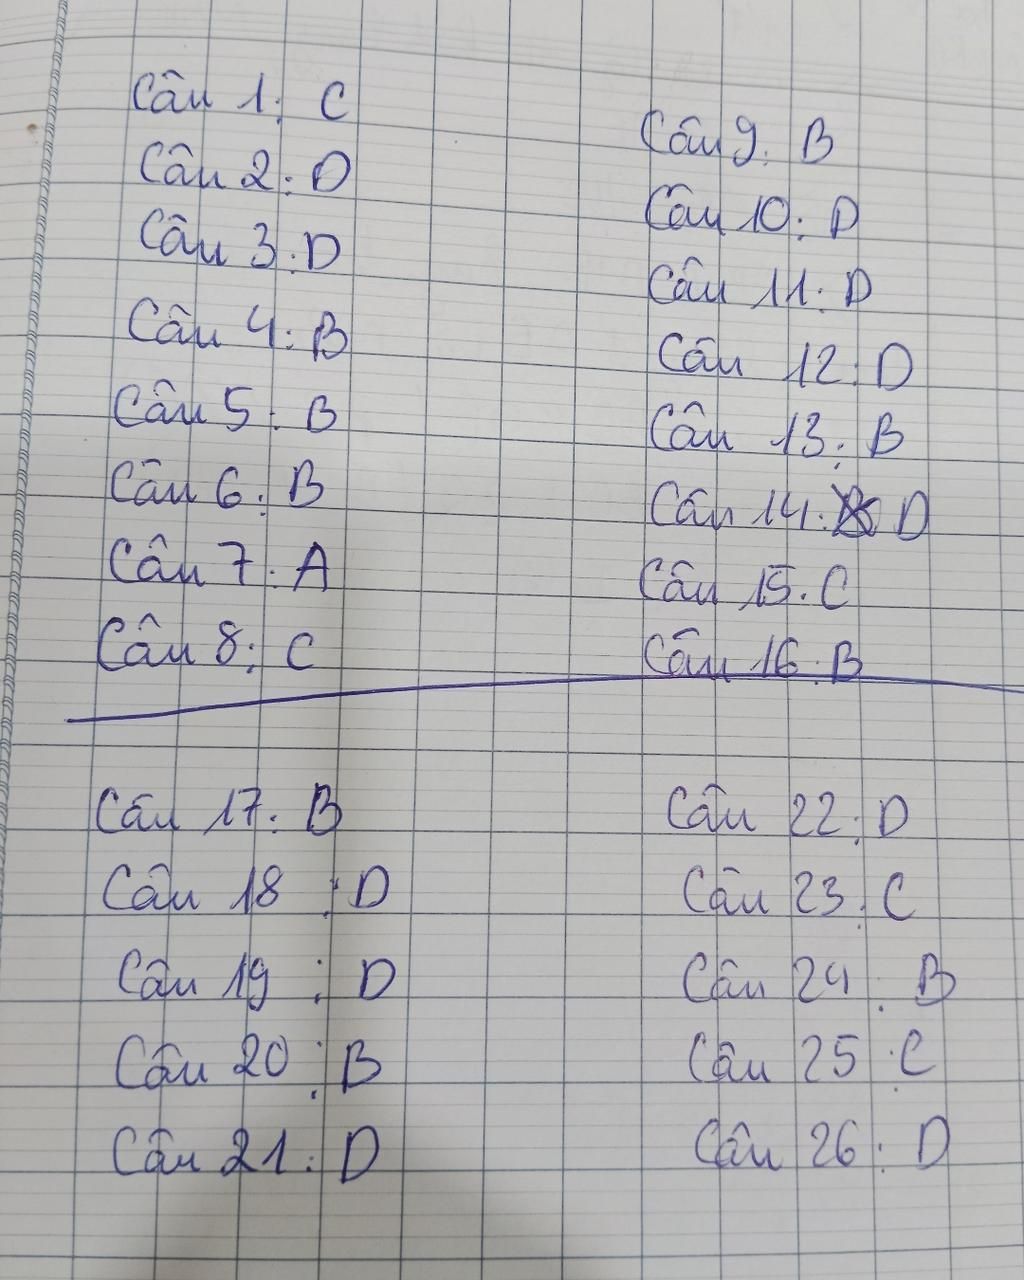 Câu 1: C
Câu 2: D
Câu 3: D
Câu 4: B
Câu 5: B
Câu 6: B
Câu 7: A
Câu 8: C
Câu 9: B
Câu 10: D
Câu 11: D
Câu 12: D
Câu 13: B
Câu 14: D
Câu 15: C
Câu 16: B
Câu 17: B
Câu 18: D
Câu 19: D
Câu 20: B
Câu 21: D
Câu 22: D
Câu 23: C
Câu 24: B
Câu 25: C
Câu 26: D